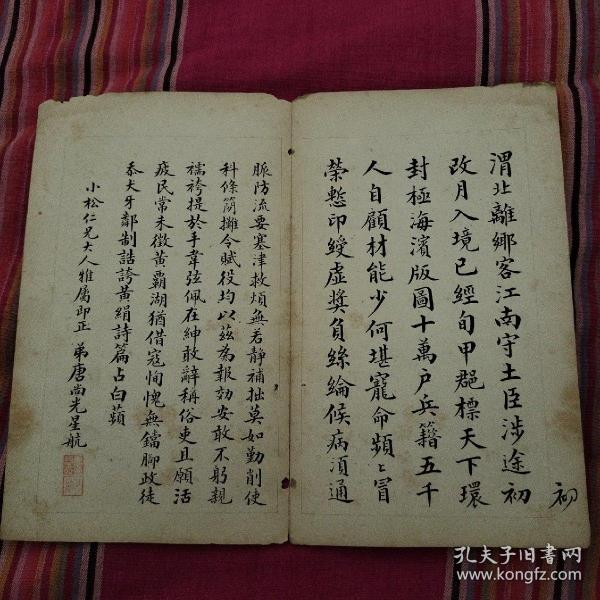 初
渭北離鄉客江南守土臣涉途初
改月入境已經旬甲郡標天下環
封極海濱版圖十萬戶兵籍五千
人自顧材能少何堪寵命頻〻冒
榮慙印綬虛奬負絲綸候病須通
脈防流要塞津救煩無若靜補拙莫如勤削使
科條簡攤令賦役均以茲為報効安敢不躬親
襦袴提於手韋弦佩在紳敢辭稱俗吏且願活
疲民常未徵黃霸湖猶借寇恂愧無鐺腳政徒
忝犬牙鄰制誥誇黃絹詩篇占白蘋
小松仁兄大人雅屬即正 弟唐尚光星航
孔夫子旧书网
www.kongfz.com